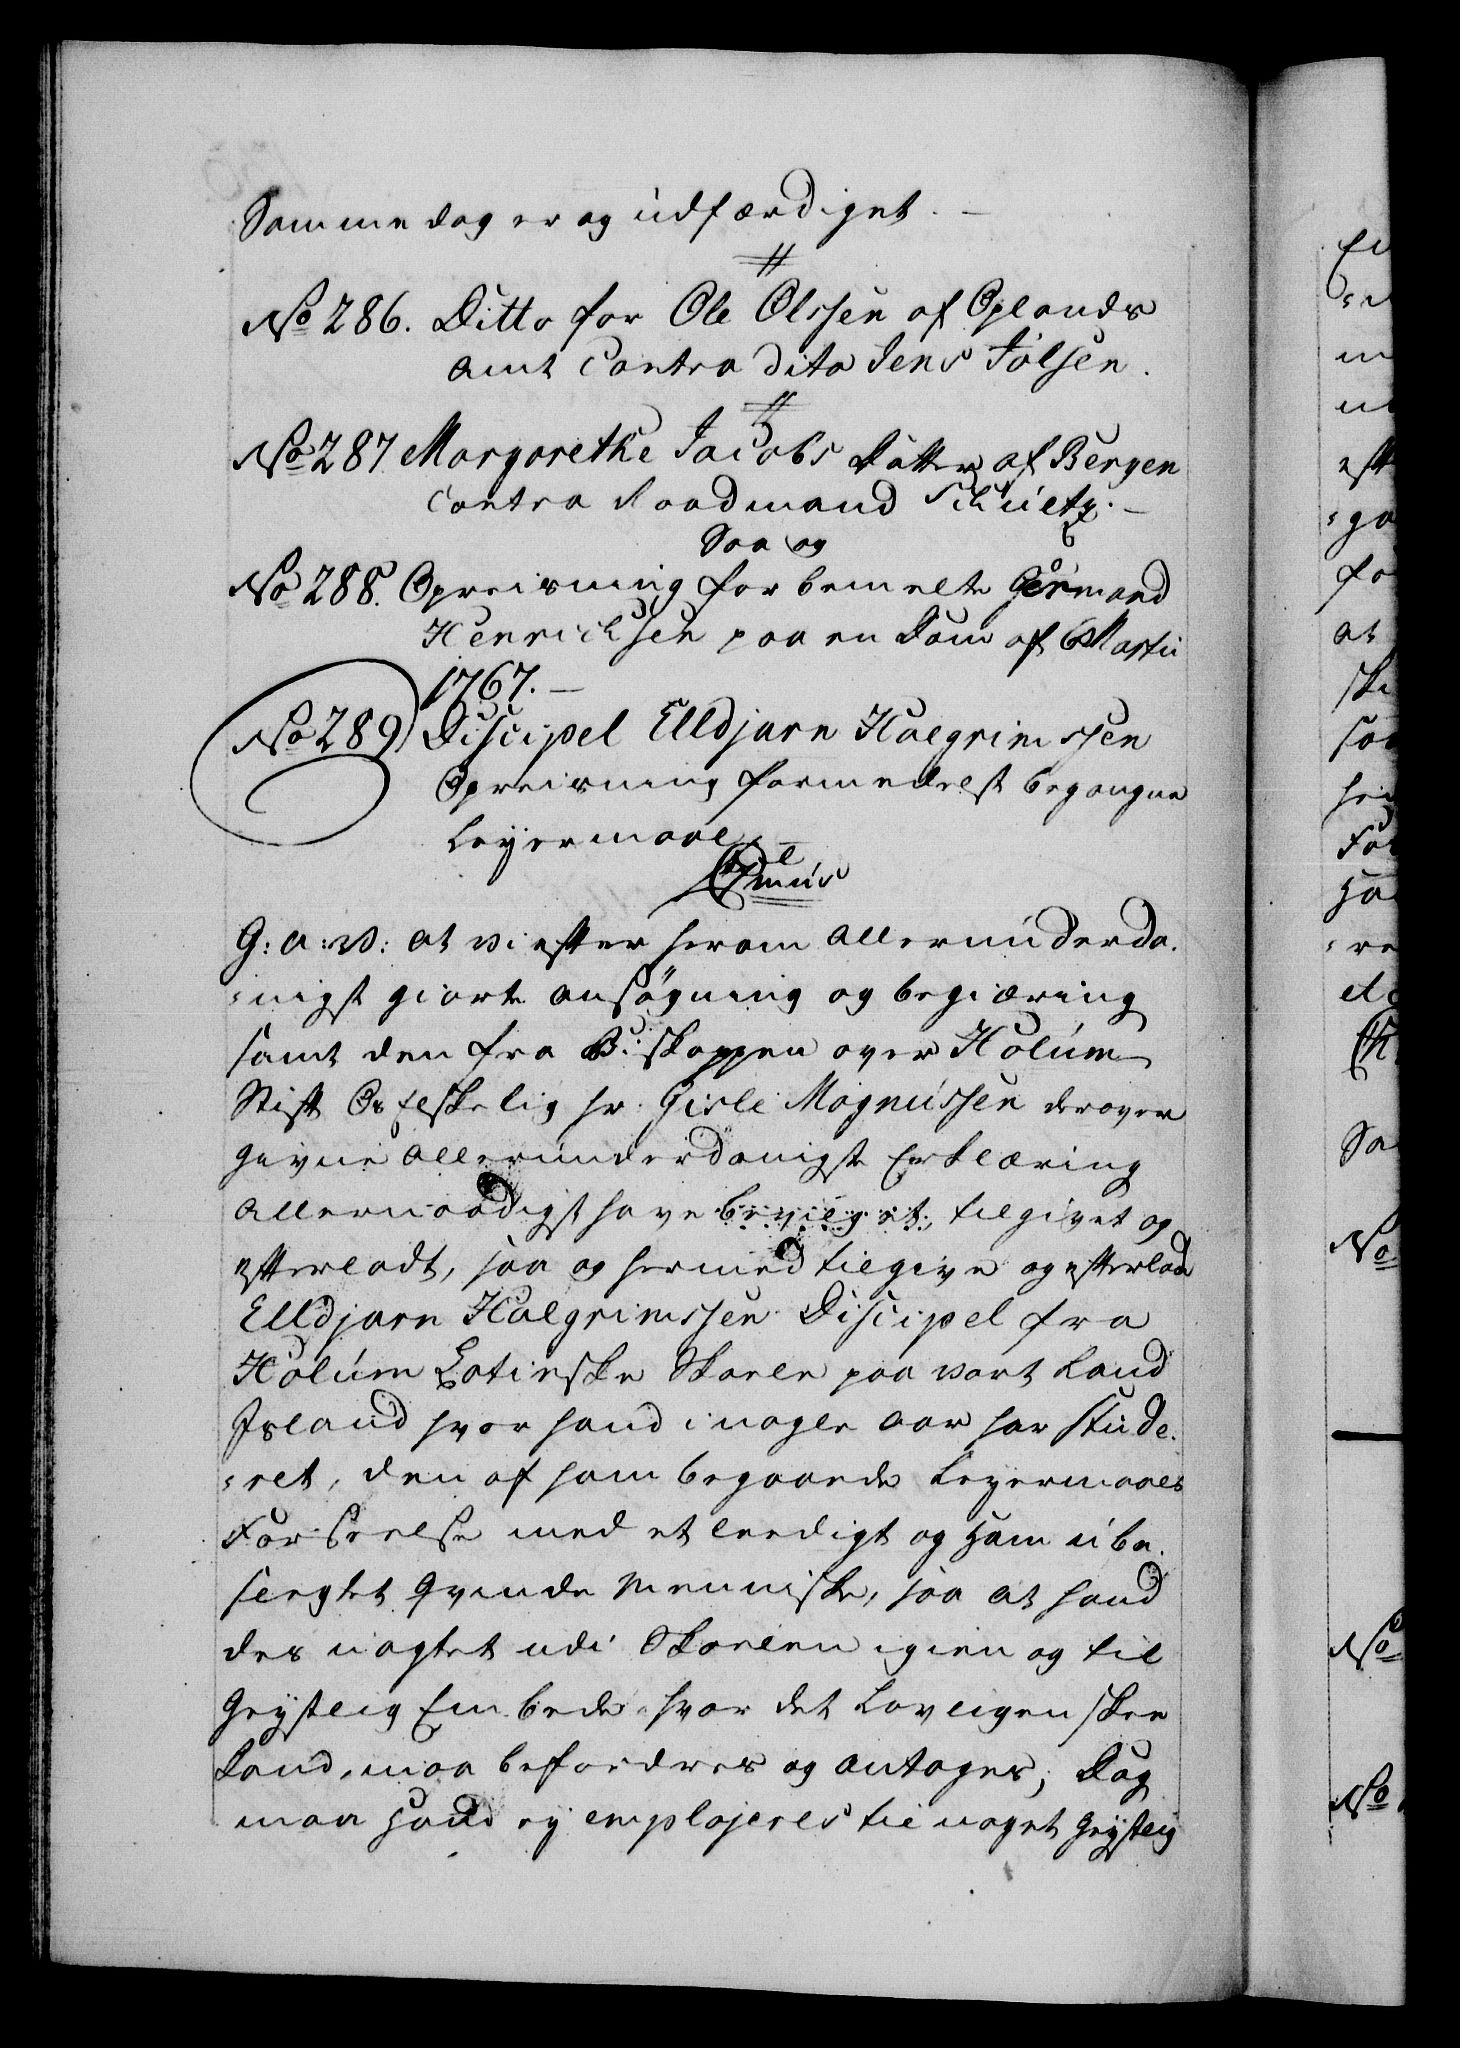 Samme dag er og udfærdiget.
No 286. Ditto for Ole Olssen af Oplands
amt Contra dito Jens Jolsen.
No 287 Margarethe Jacobs Datter af Bergen
Contra Raadmand
Saa og
No 288. Opreisning for bemelte Giermand
Henrichsen paa en Dom af 6 Martii
1767.
No 289 Discipel Elldjarn Halgrimssen
Opreisning formedelst begangne
Leyermaal.
G: a: v: at vi efter herom allerunderda-
-nigst giorte ansøgning og begiæring
samt den fra Biskoppen over Holum
Stift Os elskelig hr. Gisle Magnussen derover
givne allerunderdanigste Erklæring
allernaadigst have bevilget, tilgivet og
efterladt, saa og hermed tilgive og efterlade
Elldjarn Halgrimssen Discipel fra
Holum Latinske Skoele paa vort Land
Island hvor hand i nogle aar har stude-
-ret, den af ham begaaede Leyermaals
Forseelse med et leedigt og ham ube-
sleglet Qvinde Menniske, saa at hand
des uagtet udi Skoelen igien og til
Geystlig Embede hvor det Lovligen skee
kand, maa befordres og antages; Dog
maa hand ey emplojeres til noget Geystlig